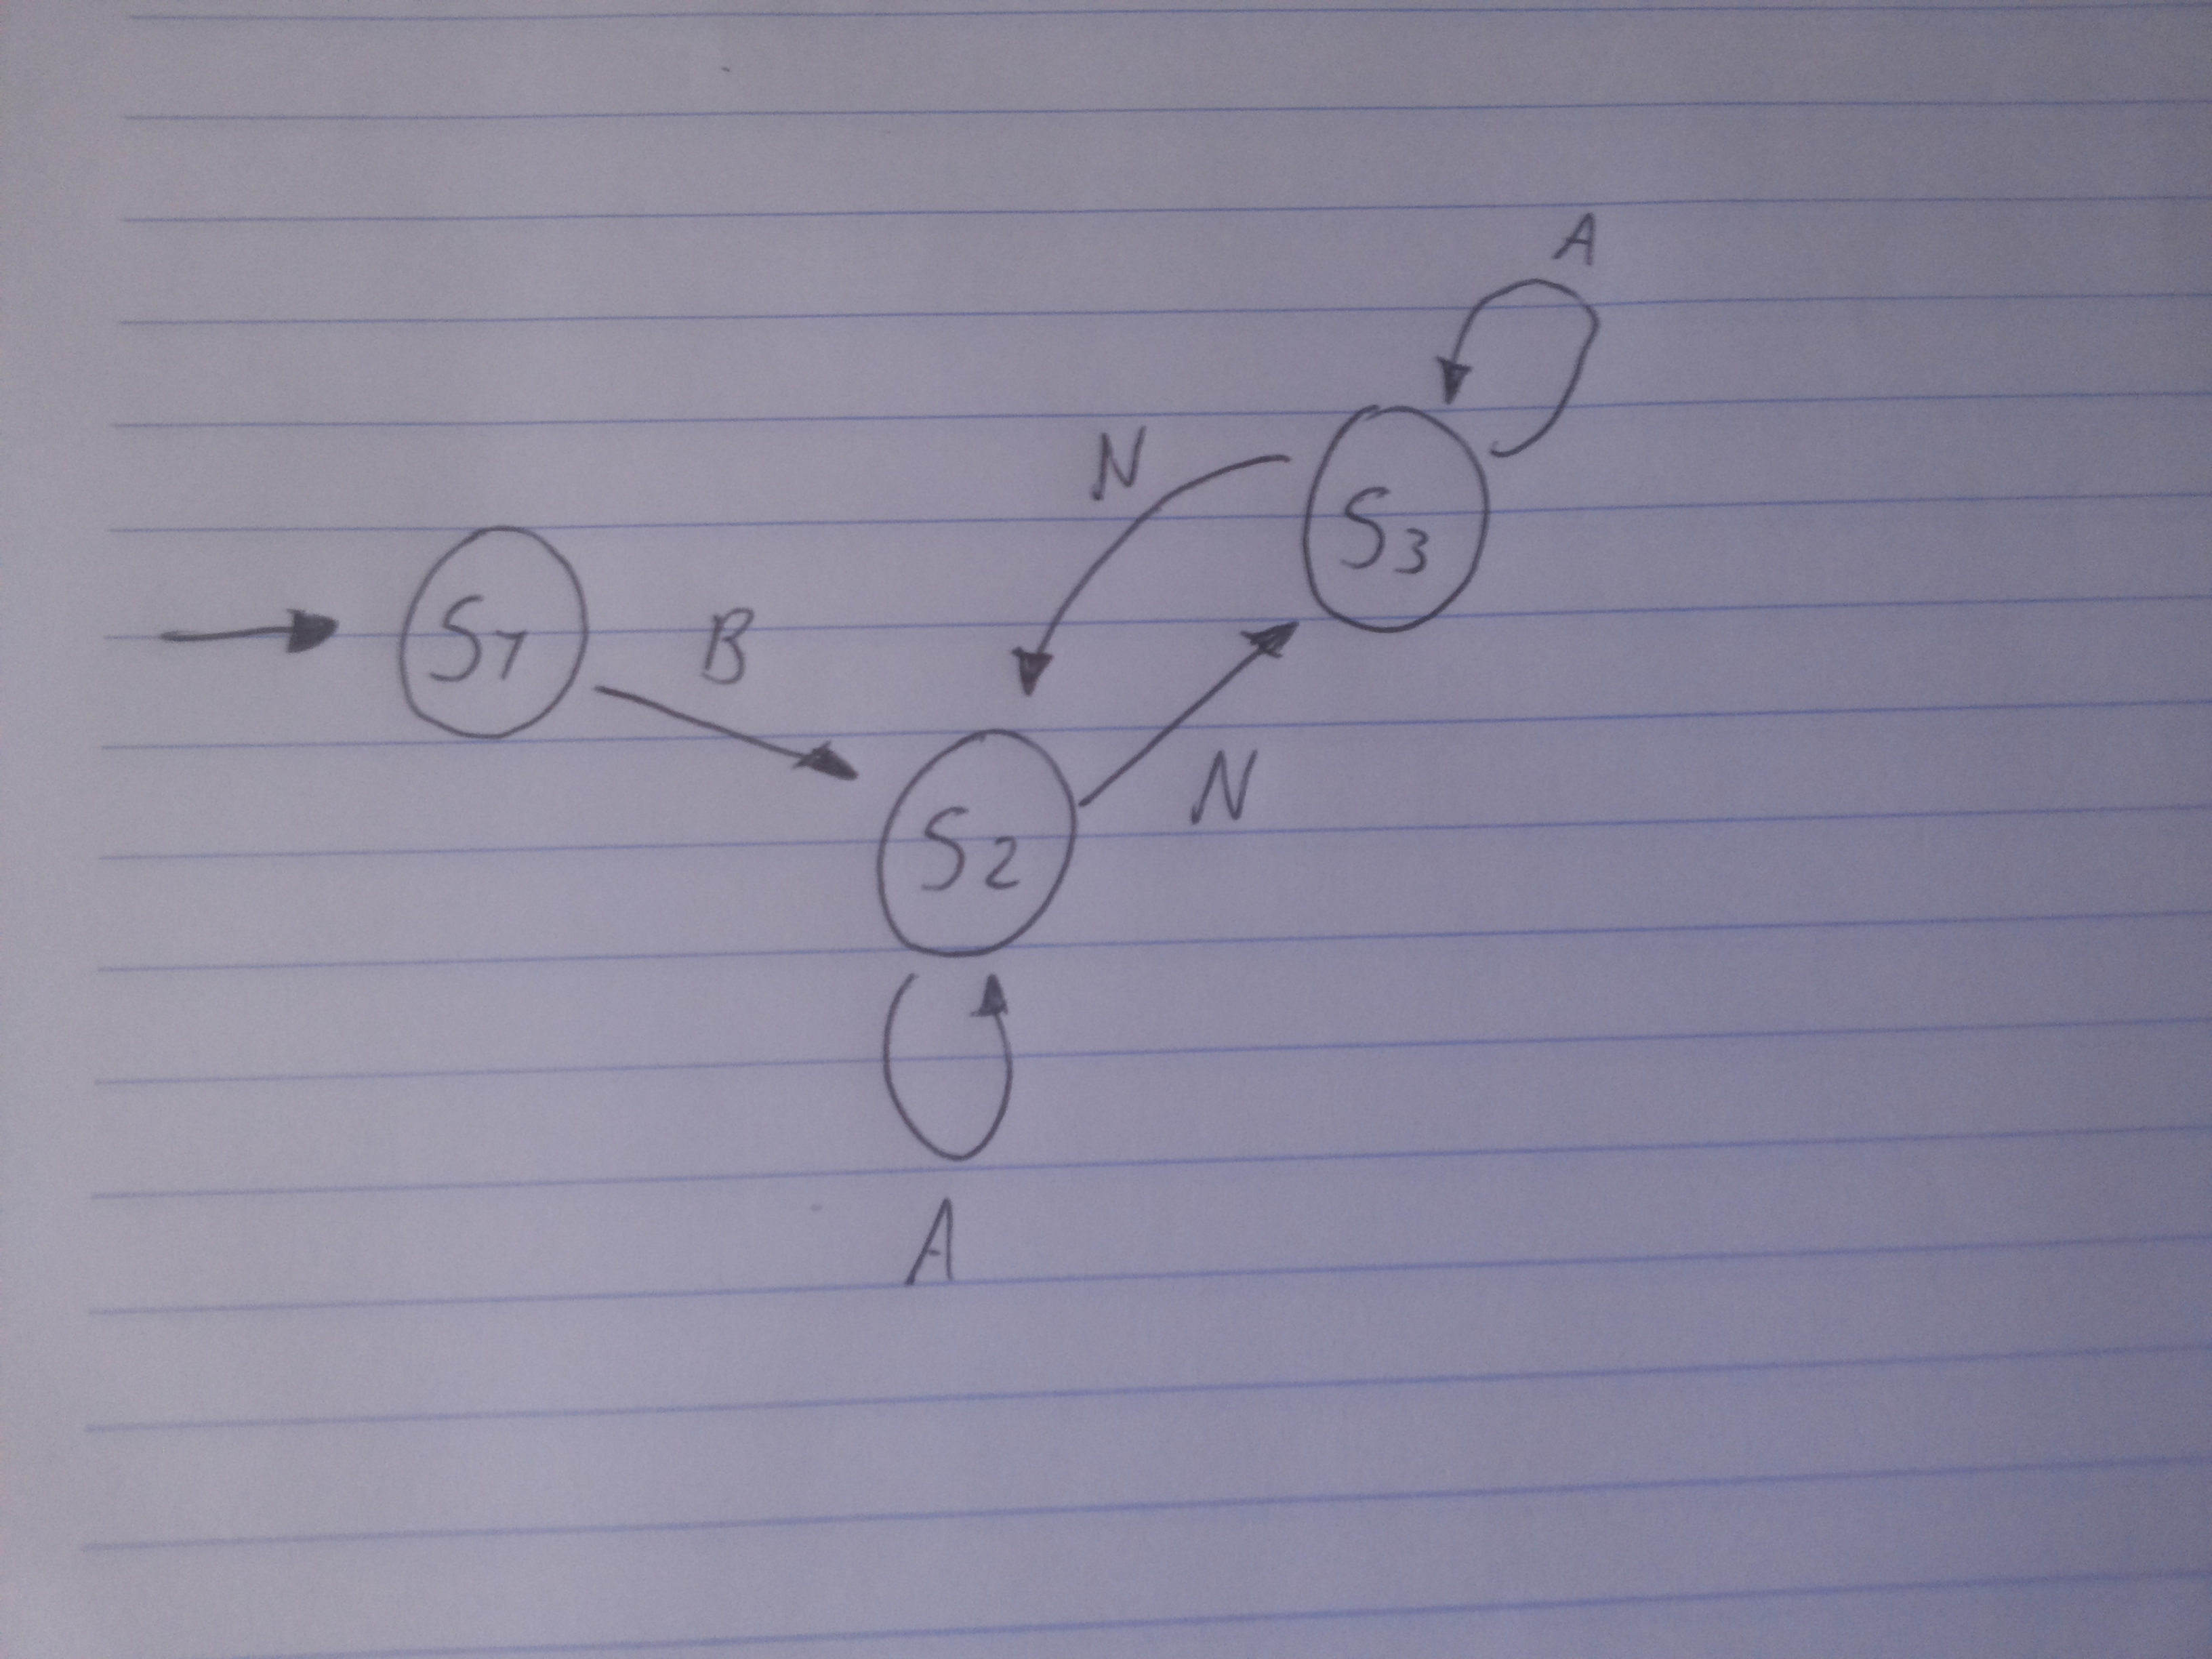 S1
B
S2
A
N
N
S3
A